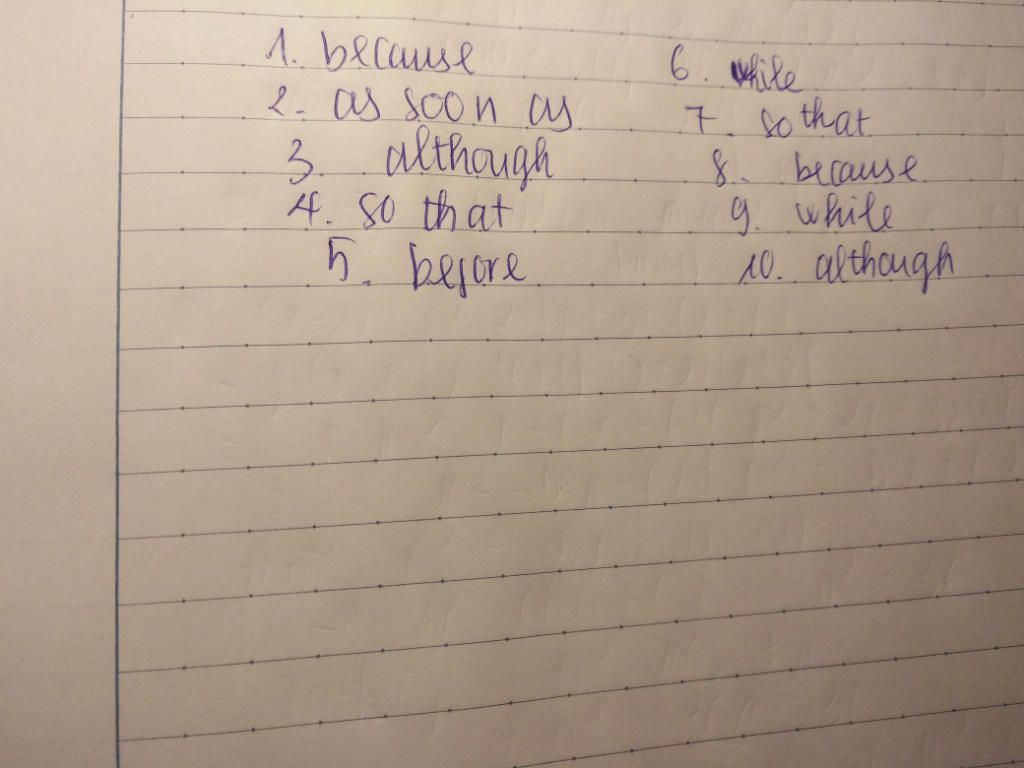 1. because
2. as soon as
3. although
4. so that
5. before
6. while
7. so that
8. because
9. while
10. although